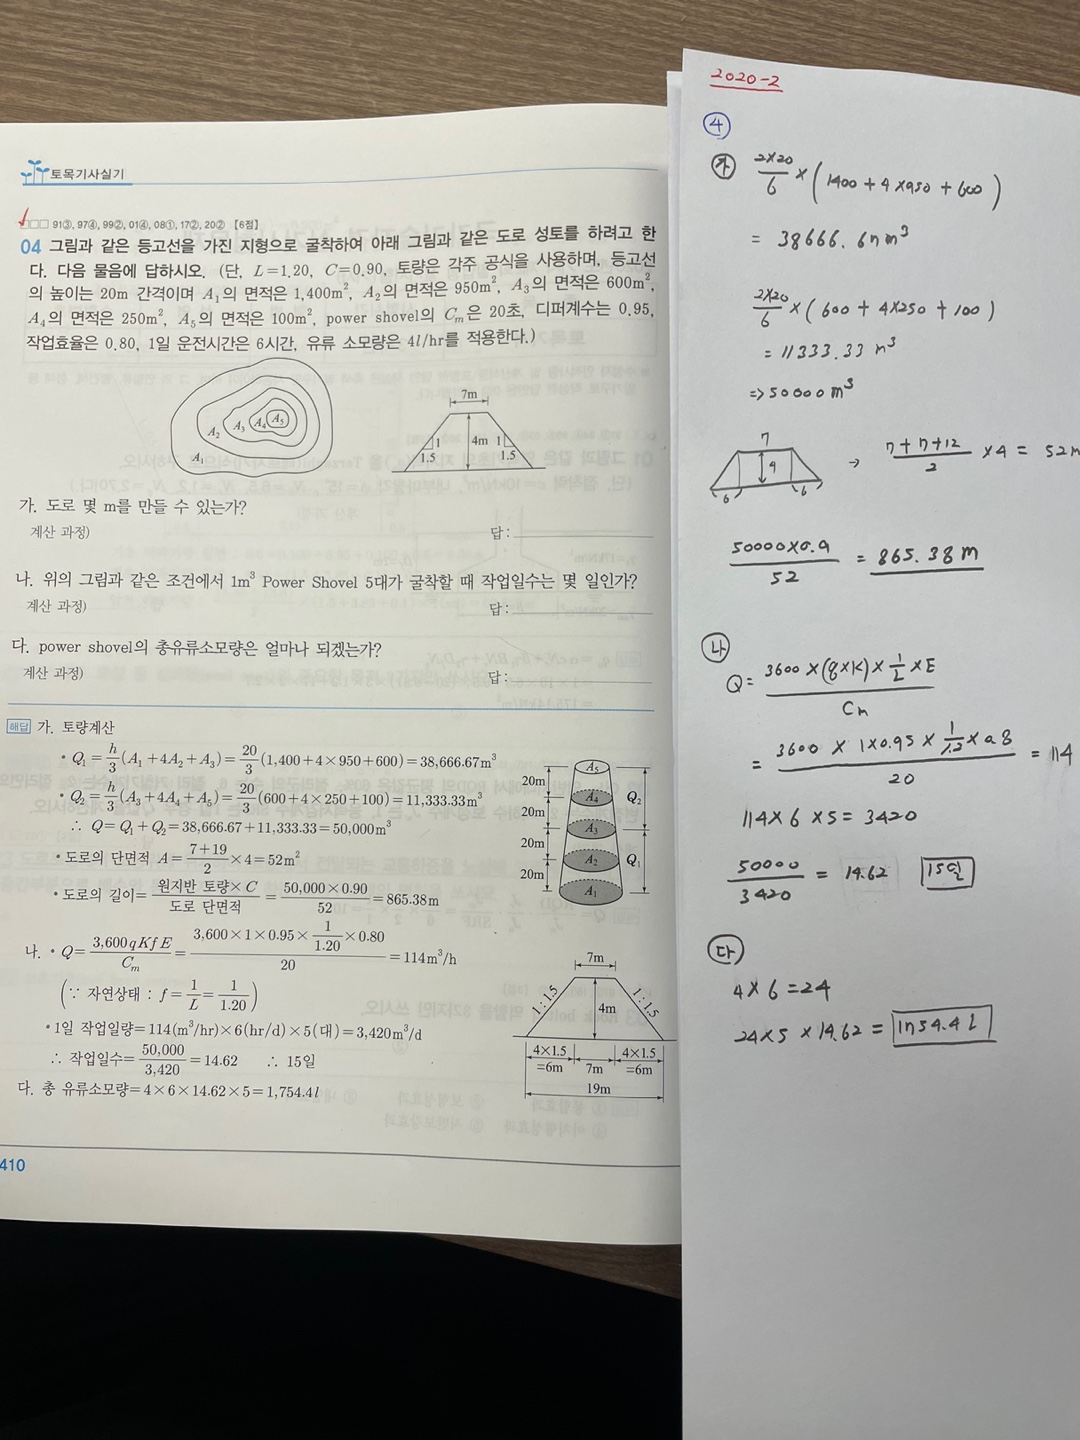 토목기사실기
□□□ 91③, 97④, 99②, 01④, 08①, 17②, 20② 【6점】
04 그림과 같은 등고선을 가진 지형으로 굴착하여 아래 그림과 같은 도로 성토를 하려고 한
다. 다음 물음에 답하시오. (단, L=1.20, C=0.90, 토량은 각주 공식을 사용하며, 등고선
의 높이는 20m 간격이며 A₁의 면적은 1,400m², A₂의 면적은 950m², A₃의 면적은 600m²,
A₄의 면적은 250m², A₅의 면적은 100m², power shovel의 Cₘ은 20초, 디퍼계수는 0.95,
작업효율은 0.80, 1일 운전시간은 6시간, 유류 소모량은 4l/hr를 적용한다.)
A₁ A₂ A₃ A₄ A₅
7m
1 4m 1
1.5 1.5
가. 도로 몇 m를 만들 수 있는가?
계산 과정) 답 :
나. 위의 그림과 같은 조건에서 1m³ Power Shovel 5대가 굴착할 때 작업일수는 몇 일인가?
계산 과정) 답 :
다. power shovel의 총유류소모량은 얼마나 되겠는가?
계산 과정) 답 :
해답 가. 토량계산
• Q₁ = h/3 (A₁+4A₂+A₃) = 20/3 (1,400+4×950+600) = 38,666.67m³
• Q₂ = h/3 (A₃+4A₄+A₅) = 20/3 (600+4×250+100) = 11,333.33m³
∴ Q=Q₁+Q₂=38,666.67+11,333.33=50,000m³
• 도로의 단면적 A = (7+19)/2 ×4=52m²
• 도로의 길이 = 원지반 토량×C / 도로 단면적 = 50,000×0.90 / 52 = 865.38m
20m A₅
20m A₄ Q₂
20m A₃
20m A₂ Q₁
A₁
나. • Q = 3,600qKfE / Cₘ = 3,600×1×0.95× 1/1.20 ×0.80 / 20 = 114m³/h
(∵ 자연상태 : f = 1/L = 1/1.20)
• 1일 작업일량=114(m³/hr)×6(hr/d)×5(대)=3,420m³/d
∴ 작업일수 = 50,000/3,420 = 14.62 ∴ 15일
다. 총 유류소모량=4×6×14.62×5=1,754.4l
7m
1 : 1.5 4m 1 : 1.5
4×1.5 4×1.5
=6m 7m =6m
19m
410
2020-2
④
㉮ 2×20/6 × (1400 + 4×950 + 600)
= 38666.67m³
2×20/6 × (600 + 4×250 + 100)
= 11333.33 m³
=> 50000m³
7
4
6 6
→ 7+7+12 / 2 ×4 = 52m
50000×0.9 / 52 = 865.38m
㉯
Q = 3600 × (q×K) × 1/L × E / Cm
= 3600 × 1×0.95 × 1/1.2 × 0.8 / 20 = 114
114×6 ×5 = 3420
50000 / 3420 = 14.62 15일
㉰
4×6 = 24
24×5 ×14.62 = 1754.4 l